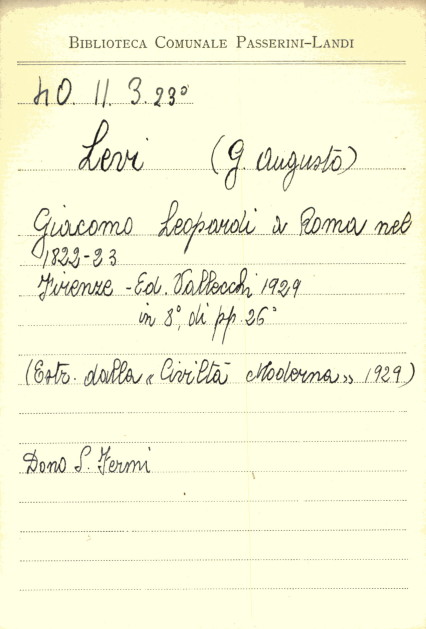 BIBLIOTECA COMUNALE PASSERINI-LANDI
40. 11. 3. 23°
Levi (G. Augusto)
Giacomo Leopardi a Roma nel
1822-23
Firenze - Ed. Vallecchi 1929
in 8°, di pp. 26°
(Estr. dalla « Civiltà Moderna » 1929)
Dono S. Fermi